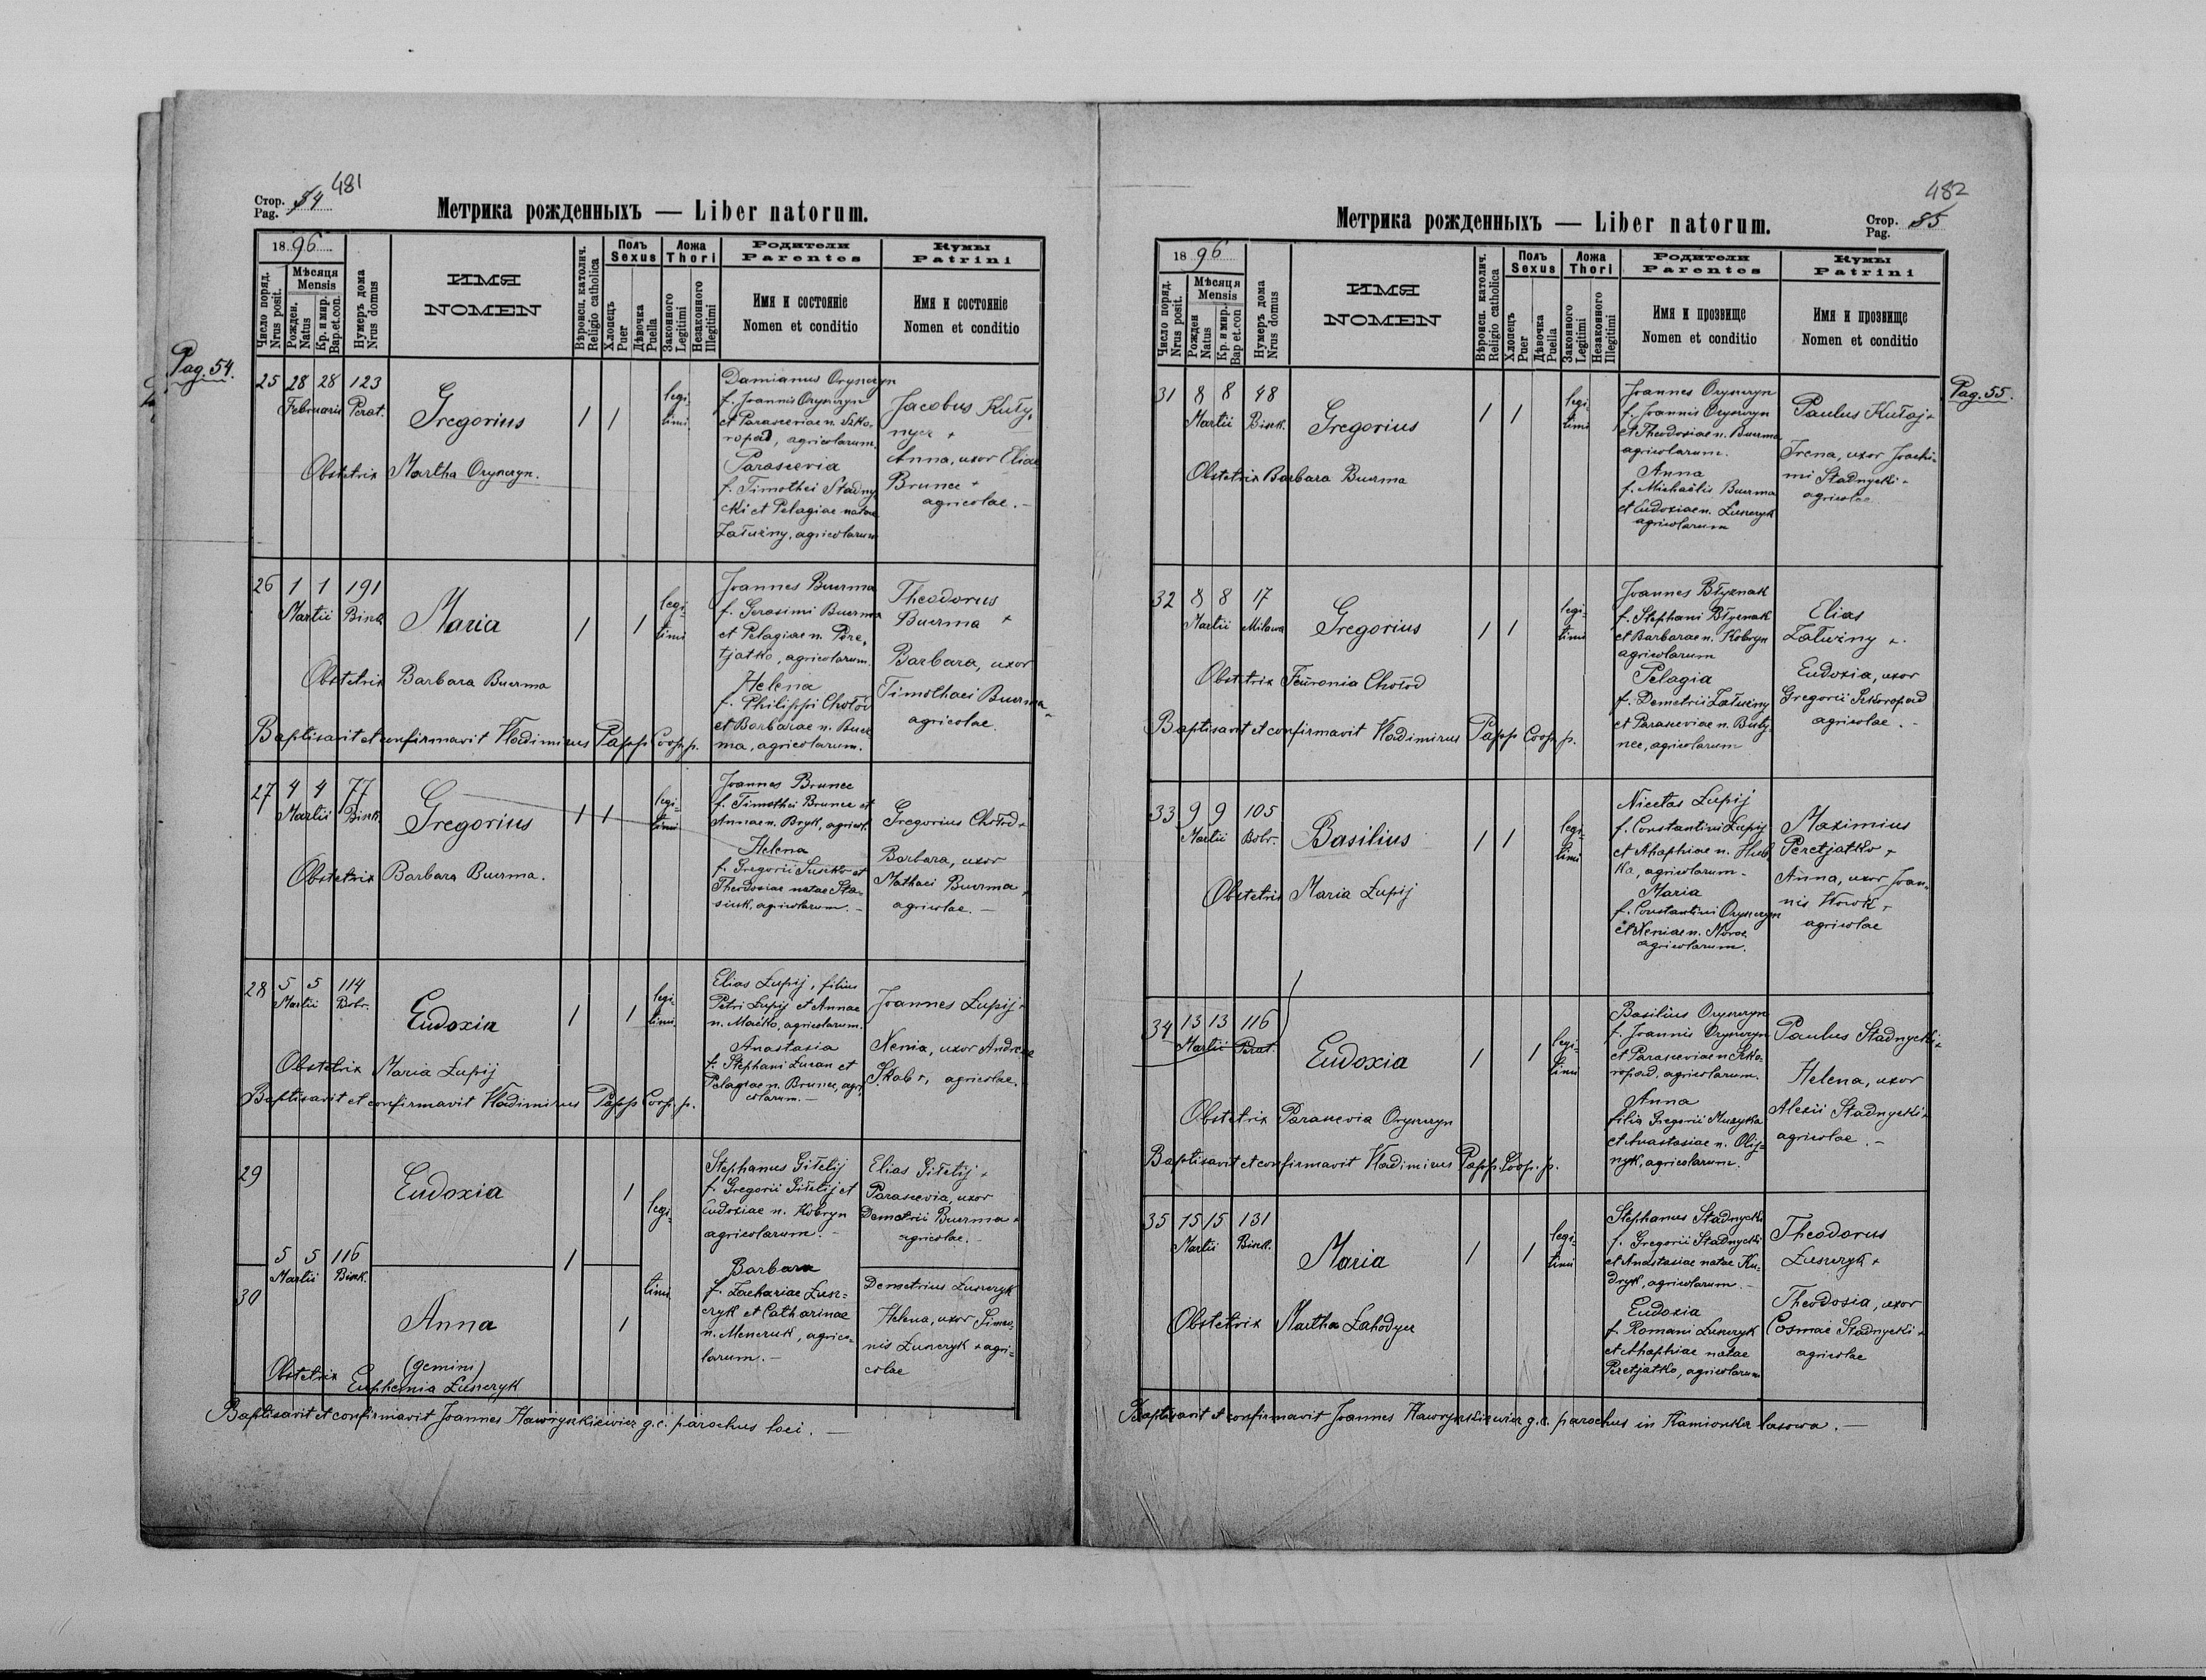 481
Стор. Pag. 54
Метрика рожденныхъ — Liber natorum.
Pag. 54.
1896
Число поряд. Nrus posit.
Мѣсяця Mensis
Рожден. Natus
Кр. и мир. Bap.et.con.
Нумеръ дома Nrus domus
ИМЯ
NOMEN
Вѣроисп. католич. Religio catholica
Полъ Sexus
Хлопець Puer
Дѣвочка Puella
Ложа Thori
Законного Legitimi
Незаконного Illegitimi
Родители
Parentes
Имя и состояніе
Nomen et conditio
Кумы
Patrini
Имя и состояніе
Nomen et conditio
25 28 28 123
Februarii Perat.
Gregorius
1 1
legi-
timi
Obstetrix Martha Oryszczyn.
Damianus Oryszczyn
f. Joannis Oryszczyn
et Parasceviae n. Szko-
ropad, agricolarum.
Parascevia
f. Timothei Stadny
cki et Pelagiae natae
Załużny, agricolarum
Jacobus Kuty,
nyez +
Anna, uxor Eliae
Brunec +
agricolae. -
26 1 1 191
Martii Bink
Maria
1 1
legi-
timi
Obstetrix Barbara Buczma
Joannes Buczma
f. Gerasimi Buczma
et Pelagiae n. Pere-
tjatko, agricolarum.
Helena
f. Philippi Chołod
et Barbarae n. Bucz
ma, agricolarum.
Theodorus
Buczma +
Barbara, uxor
Timothaei Buczma
agricolae.
Baptisavit et confirmavit Wladimirus Papp Coop. p.
27 4 4 77
Martii Bink.
Gregorius
1 1
legi-
timi
Obstetrix Barbara Buczma.
Joannes Brunec
f. Timothei Brunec et
Annae n. Bryk, agricol.
Helena
f. Gregorii Suszko et
Theodosiae natae Sta-
siuk, agricolarum. -
Gregorius Chołod +
Barbara, uxor
Mathaei Buczma +
agricolae. -
28 5 5 114
Martii Bobr.
Eudoxia
1 1
legi-
timi.
Obstetrix Maria Łupij
Elias Łupij, filius
Petri Łupij et Annae
n. Maćko, agricolarum.
Anastasia
f. Stephani Łucan et
Pelagiae n. Brunec, agri-
colarum. -
Joannes Łupij +
Xenia, uxor Andreae
Skab +, agricolae.
Baptisavit et confirmavit Wladimirus Papp Coop. p.
29
Eudoxia
1
5 5 116
Martii Bink.
1
legi-
timi
30
Anna
1
(gemini)
Obstetrix Euphemia Łuszczyk
Stephanus Giłetij
f. Gregorii Giłetij et
Eudoxiae n. Kobryn
agricolarum. -
Barbara
f. Zachariae Łusz-
czyk et Catharinae
n. Menczuk, agrico-
larum. -
Elias Giłetij +
Parascevia, uxor
Demetrii Buczma +
agricolae. -
Demetrius Łuszczyk
Helena, uxor Simeo-
nis Łuszczyk + agri-
colae
Baptisavit et confirmavit Joannes Hawryszkiewicz g.c. parochus loci. -
482
Стор. Pag. 55
Метрика рожденныхъ — Liber natorum.
Pag. 55.
1896
Число поряд. Nrus posit.
Мѣсяця Mensis
Рожден Natus
Кр. и мир. Bap et.con
Нумеръ дома Nrus domus
ИМЯ
NOMEN
Вѣроисп. католич. Religio catholica
Полъ Sexus
Хлопець Puer
Дѣвочка Puella
Ложа Thori
Законного Legitimi
Незаконного Illegitimi
Родители
Parentes
Имя и прозвище
Nomen et conditio
Кумы
Patrini
Имя и прозвище
Nomen et conditio
31 8 8 48
Martii Bink.
Gregorius
1 1
legi-
timi
Obstetrix Barbara Buczma
Joannes Oryszczyn
f. Joannis Oryszczyn
et Theodosiae n. Buczma
agricolarum.
Anna
f. Michaëlis Buczma
et Eudoxiae n. Łuszczyk
agricolarum
Paulus Kułaj +
Irena, uxor Joachi-
mi Stadnycki +
agricolae
32 8 8 17
Martii Milowa
Gregorius
1 1
legi-
timi
Obstetrix Fewronia Chołod
Joannes Błyznak
f. Stephani Błyznak
et Barbarae n. Kobryn
agricolarum
Pelagia
f. Demetrii Załużny
et Parasceviae n. Buty
nec, agricolarum
Elias
Załużny +
Eudoxia, uxor
Gregorii Szkoropad
agricolae. -
Baptisavit et confirmavit Wladimirus Papp Coop. p.
33 9 9 105
Martii Bobr.
Basilius
1 1
legi-
timi
Obstetrix Maria Łupij
Nicetas Łupij
f. Constantini Łupij
et Ahaphiae n. Hub
ka, agricolarum.
Maria
f. Constantini Oryszczyn
et Xeniae n.
agricolarum.
Maximius
Peretjatko +
Anna, uxor Joan-
nis Wowk +
agricolae
34 13 13 116
Martii Perat.
Eudoxia
1 1
legi-
timi
Obstetrix Parascevia Oryszczyn
Basilius Oryszczyn
f. Joannis Oryszczyn
et Parasceviae n Szko-
ropad, agricolarum.
Anna
filia Gregorii Muzyka
et Anastasiae n. Olij-
nyk, agricolarum.
Paulus Stadnycki +
Helena, uxor
Alexii Stadnycki +
agricolae. -
Baptisavit et confirmavit Wladimirus Papp. Coop. p.
35 15 15 131
Martii Bink.
Maria
1 1
legi-
timi
Obstetrix Martha Zahodyer
Stephanus Stadnycki
f. Gregorii Stadnycki
et Anastasiae natae Ku-
dryk, agricolarum.
Eudoxia
f. Romani Łuszczyk
et Ahaphiae natae
Peretjatko, agricolarum
Theodorus
Łuszczyk +
Theodosia, uxor
Cosmae Stadnycki +
agricolae
Baptisavit et confirmavit Joannes Hawryszkiewicz g.c. parochus in Kamionka lasowa. -